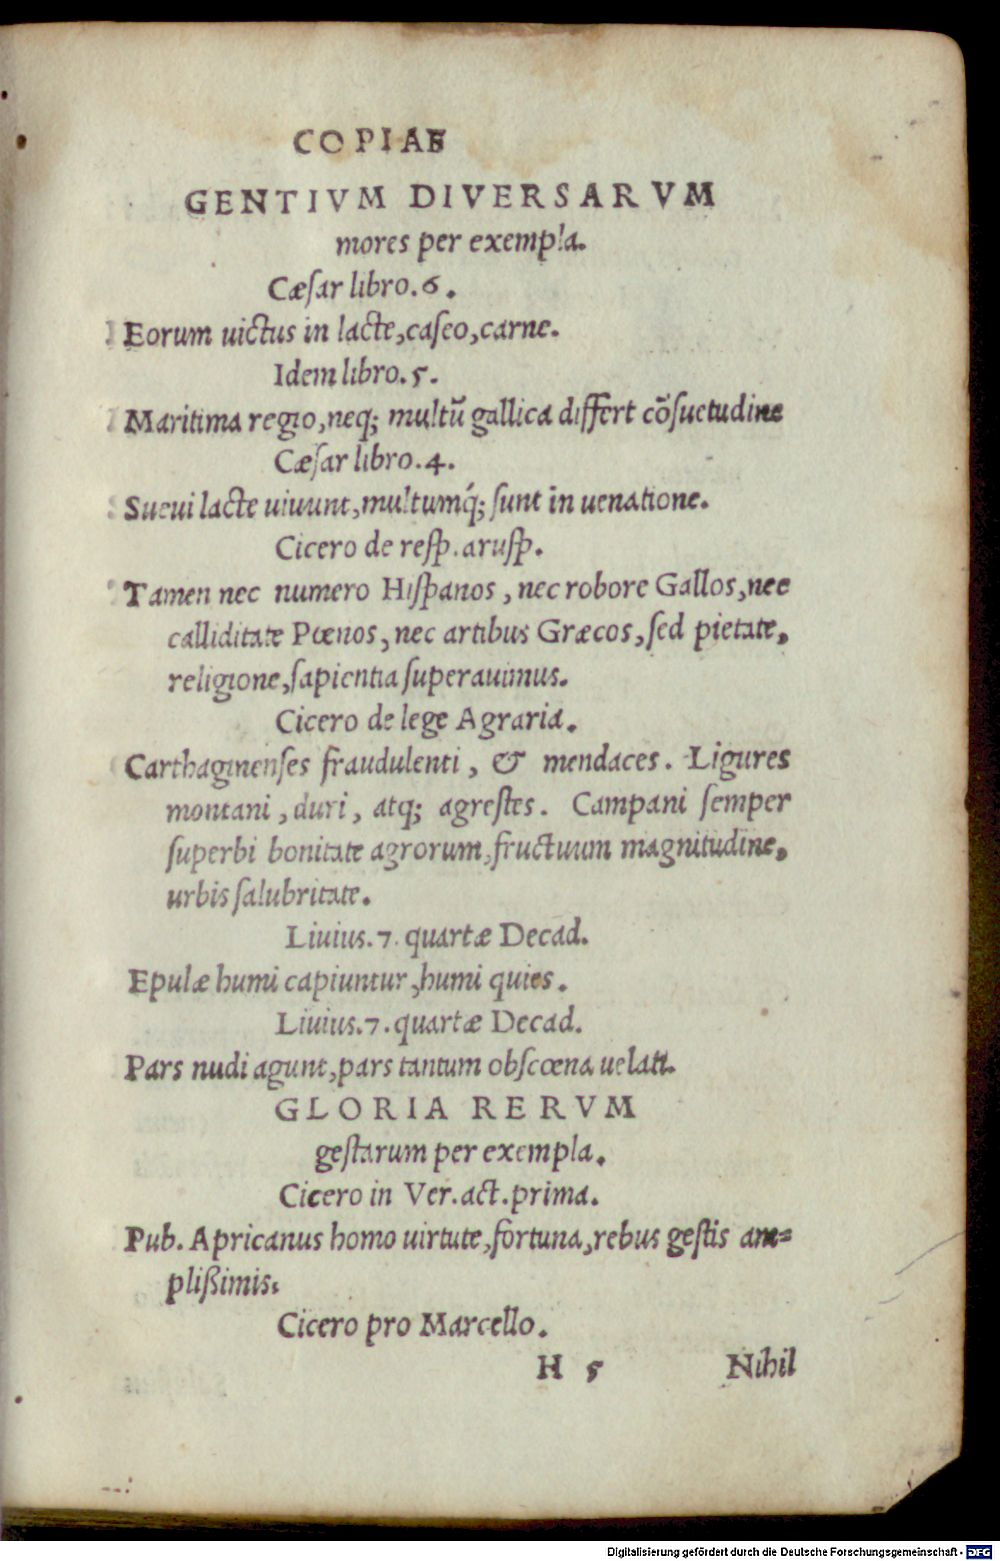 COPIAE
GENTIVM DIVERSARVM
mores per exempla.
Cæſar libro.6.
Eorum uictus in lacte,caſeo,carne.
Idem libro.5.
Maritima regio,neq; multū gallica differt cōſuetudine
Cæſar libro.4.
Sueui lacte uiuunt,multumq́; ſunt in uenatione.
Cicero de reſp.aruſp.
Tamen nec numero Hiſpanos, nec robore Gallos,nec
calliditate Pœnos, nec artibus Græcos, ſed pietate,
religione,ſapientia ſuperauimus.
Cicero de lege Agraria.
Carthaginenſes fraudulenti, & mendaces. Ligures
montani, duri, atq; agreſtes. Campani ſemper
ſuperbi bonitate agrorum,fructuum magnitudine,
urbis ſalubritate.
Liuius.7. quartæ Decad.
Epulæ humi capiuntur,humi quies.
Liuius.7. quartæ Decad.
Pars nudi agunt,pars tantum obſcœna uelati.
GLORIA RERVM
geſtarum per exempla.
Cicero in Ver.act.prima.
Pub. Apricanus homo uirtute,fortuna,rebus geſtis am=
plißimis.
Cicero pro Marcello.
H 5 Nihil
Digitalisierung gefördert durch die Deutsche Forschungsgemeinschaft - DFG